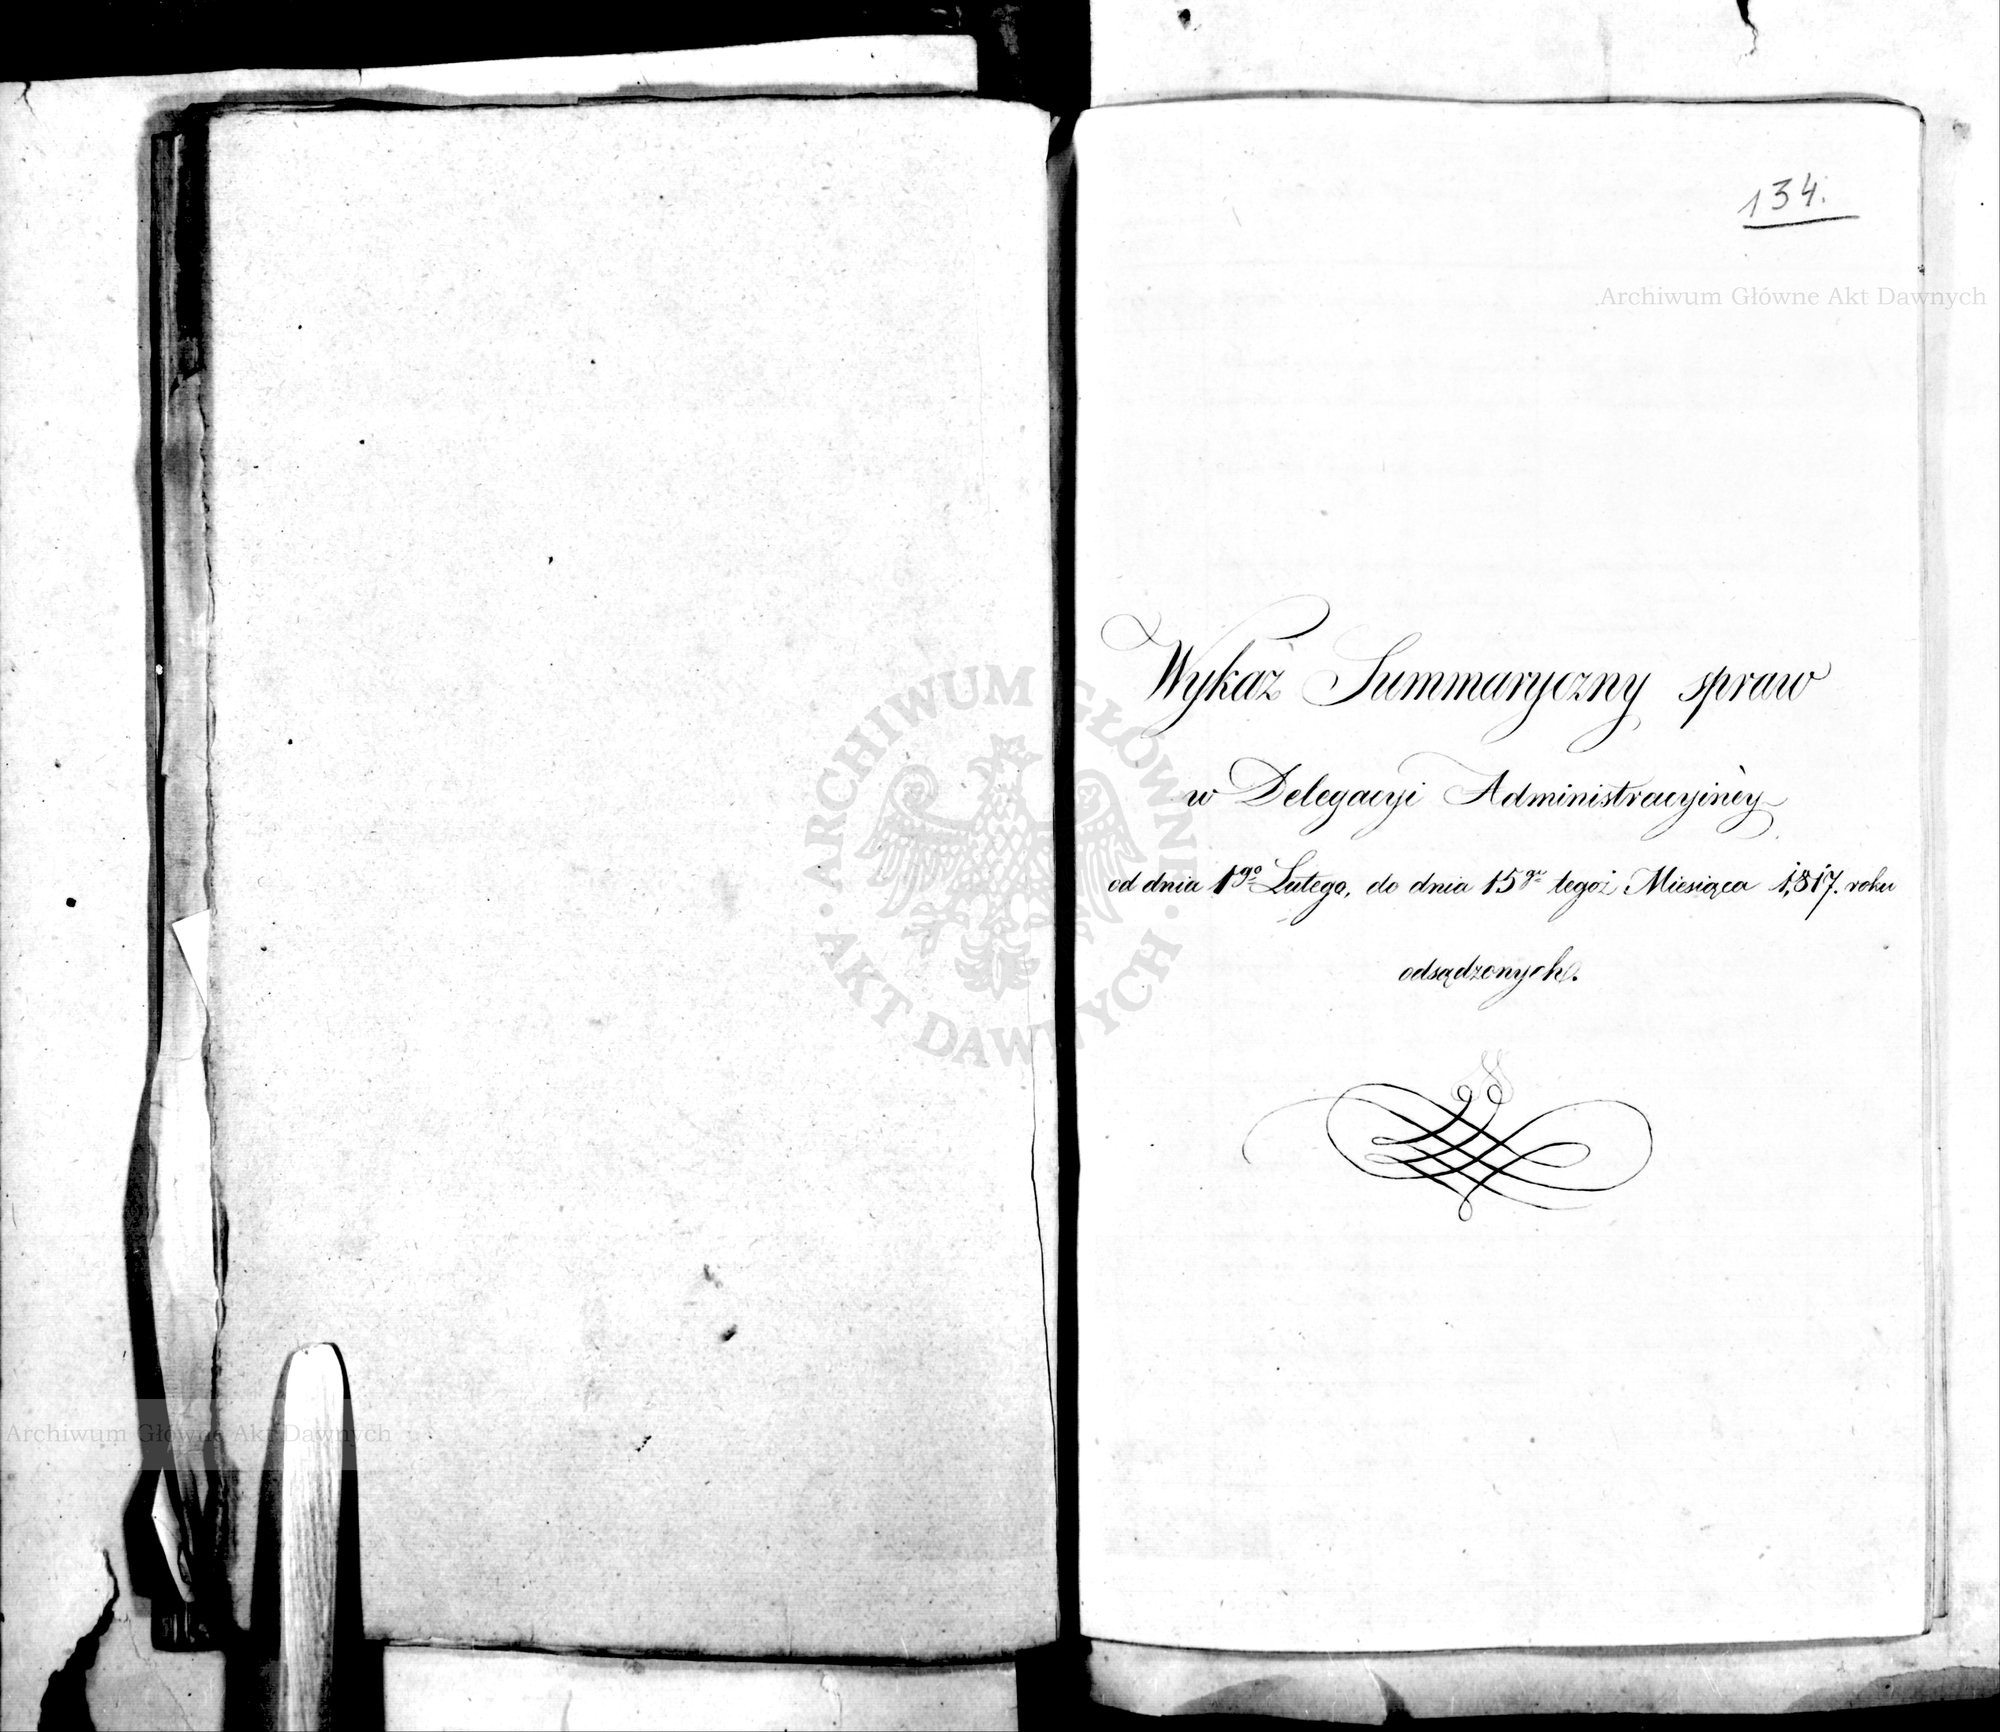 134.
Archiwum Główne Akt Dawnych
Wykaz Summaryczny spraw
w Delegacyi Administracyinéy
od dnia 1go Lutego, do dnia 15go tegoż Miesiąca 1,817. roku
odsądzonych.
ARCHIWUM GŁÓWNE · AKT DAWNYCH ·
Archiwum Główne Akt Dawnych